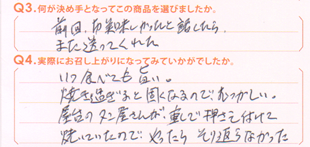 Q3.何が決め手となってこの商品を選びましたか。
前回、お美味しかったと話したら
また送ってくれた
Q4.実際にお召し上がりになってみていかがでしたか。
いつ食べても旨い。
焼き過ぎると固くなるのでむつかしい。
屋台のタン屋さんが、重しで押さえ付けて
焼いていたので やったら そり返らなかった